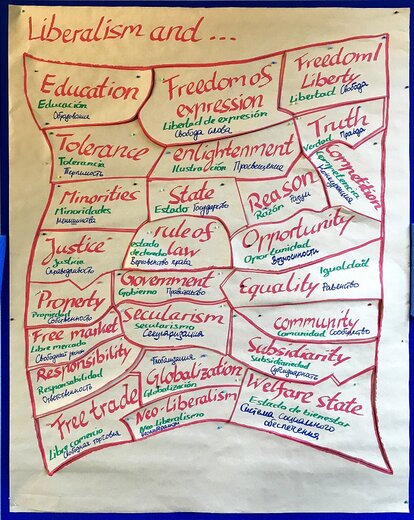 Liberalism and ...
Education
Educación
Образования
Freedom of
expression
Libertad de expresión
Свобода слова
Freedom/
Liberty
Libertad Свобода
Tolerance
Tolerancia
Терпимость
enlightenment
Ilustración Просвещение
Truth
Verdad Правда
Competition
Competencia
Конкуренция
Minorities
Minoridades
меньшинства
State
Estado Государство
Reason
Razón Разум
Justice
Justicia
Справедливость
rule of
law
estado
de derecho
Верховенство права
Opportunity
Oportunidad
Возможности
Property
Propiedad
Собственность
Government
Gobierno Правительство
Equality
Igualdad
Равенство
Free market
Libre mercado
Свободный рынок
Secularism
Secularismo
Секуляризация
community
Comunidad Сообщество
Responsibility
Responsabilidad
Ответственность
Глобализация
Globalization
Globalización
Subsidiarity
Subsidiariedad
Субсидиарность
Free trade
Libre comercio
Свободная торговля
Neo-Liberalism
Neo-liberalismo
Неолиберализм
Welfare state
Estado de bienestar
Система социального
обеспечения